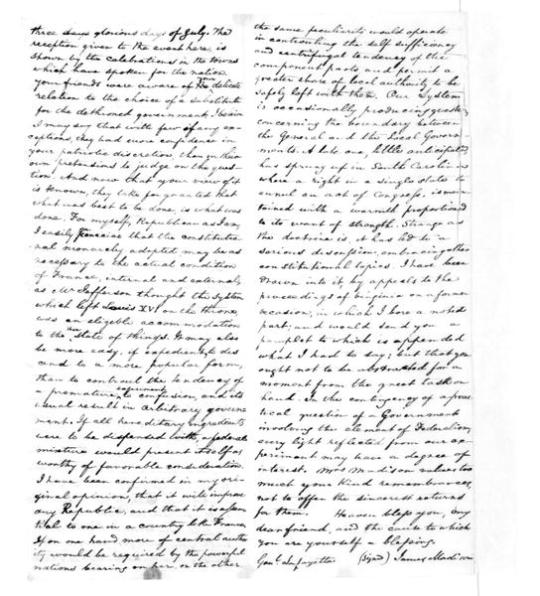 three days glorious days of July. The
reception given to the event here is
shown by the celebrations in the towns
which have spoken for the nation
your friends were aware of the delicate
your
relation to the choice of a substitute
for the dethroned government. I believe
I may say that with few if any ex-
ceptions, they had more confidence in
your patriotic discretion, than in their
own pretensions to judge on the ques-
tion. And now that your view of it
is known, they take for granted that
what was best to be done, is what was
done. For myself, Republican as I am,
I easily conceive that the constitutio-
nal monarchy adopted may be as
necessary to the actual condition
of France, internal and external,
as Mr Jefferson thought the System
which left Louis XVI on the throne,
was an eligible accommodation
to the then State of things. It may also
be more easy, if expedient, to des-
cend to a more popular form,
than to controul the tendency of
a premature experiment to confusion, and its
usual result in arbitrary govern-
ment. If all hereditary ingredients
were to be dispensed with, a federal
mixture would present itself as
worthy of favorable consideration.
I have been confirmed in my ori-
ginal opinion, that it will improve
any Republic, and that it is essen-
tial to one in a country like France.
If on one hand more of central autho-
rity would be required by the powerful
nations bearing on her, on the other
the same peculiarity would operate
in controuling the self sufficiency
and centrifugal tendency of the
component parts and permit a
greater share of local authority to be
safely left with them. Our System
is occasionally producing questions
concerning the boundary between
the General and the Local Govern-
ments. A late one, little anticipated,
has sprung up in South Carolina
where a right in a single State to
annul an act of Congress, is main-
tained with a warmth proportioned
to its want of strength. Strange as
the doctrine is, it has led to a
serious discussion, embracing other
constitutional topics. I have been
drawn into it by appeals to the
proceedings of Virginia on a former
occasion, in which I bore a noted
part; and would send you a
pamphlet to which is appended
what I had to say; but that you
ought not to be abstracted for a
moment from the great task on
hand. In the contingency of a prac-
tical question of a Government
involving the element of Federalism,
every light reflected from our ex-
periment may have a degree of
interest. Mrs Madison values too
much your kind remembrances,
not to offer the sincerest returns
for them. Heaven bless you, my
dear friend, and the cause to which
you are yourself a blessing.
Genl. Lafayette (signd) James Madison